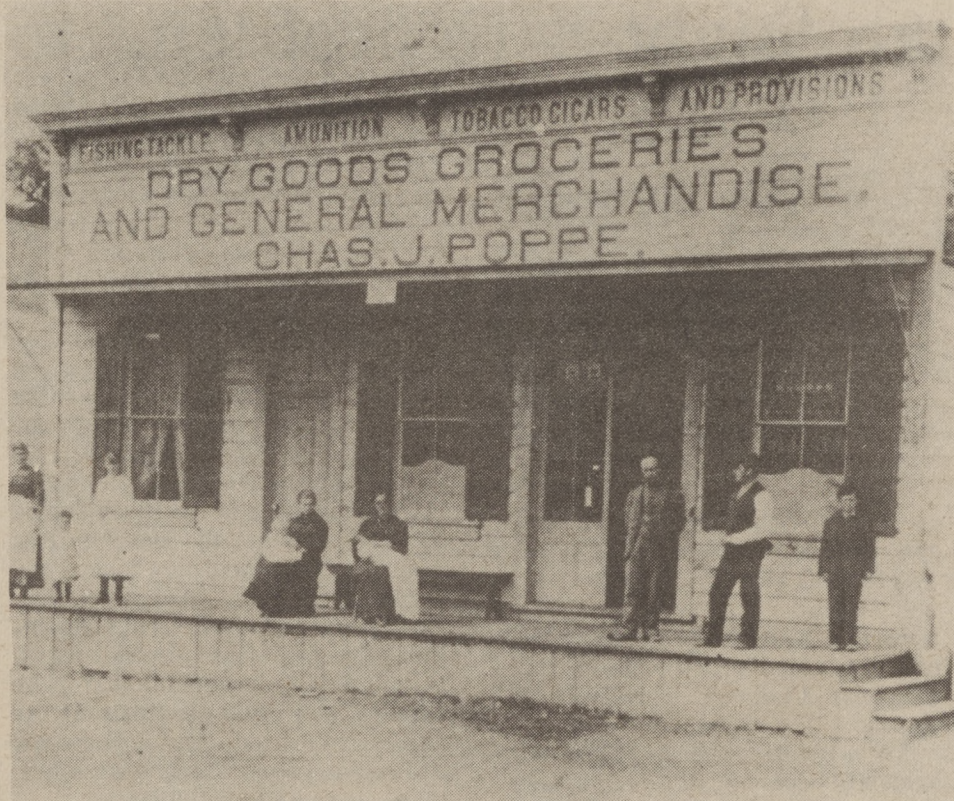 FISHING TACKLE. AMUNITION TOBACCO, CIGARS AND PROVISIONS
DRY GOODS GROCERIES
AND GENERAL MERCHANDISE.
CHAS. J. POPPE.